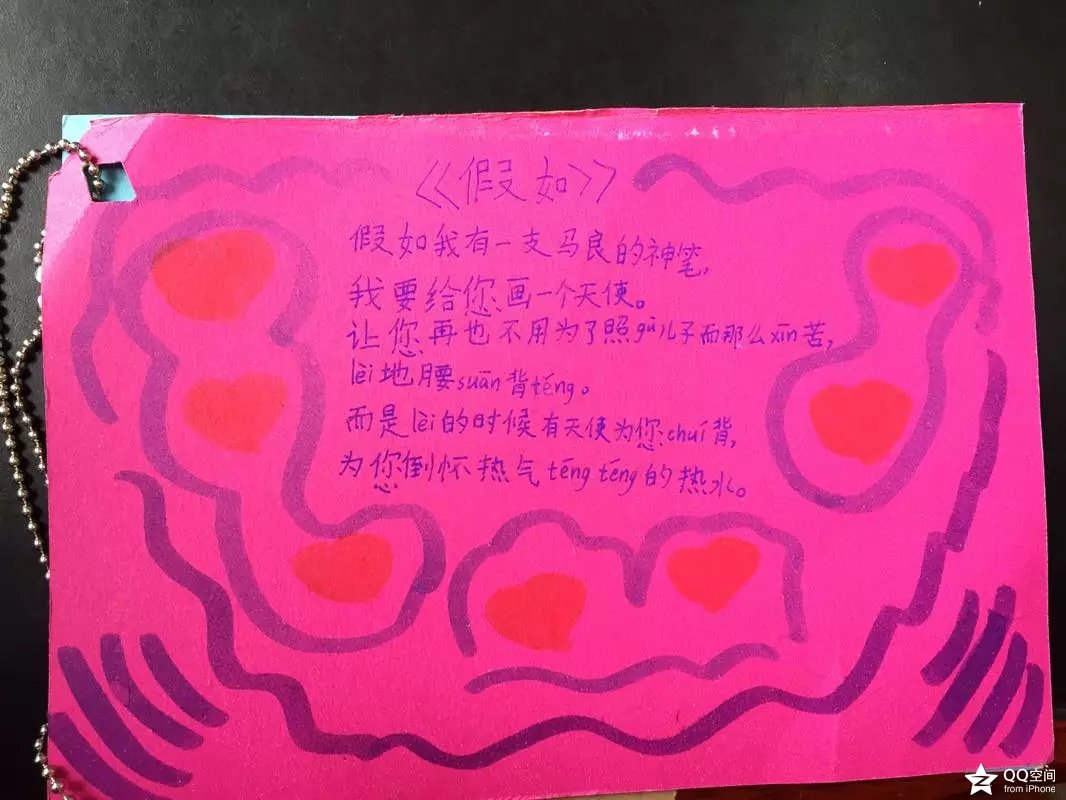 《假如》
假如我有一支马良的神笔,
我要给您画一个天使。
让您再也不用为了照gù儿子而那么xīn苦,
lèi地腰suān背téng。
而是lèi的时候有天使为您chuí背,
为您倒怀热气téng téng的热水。
QQ空间
from iPhone